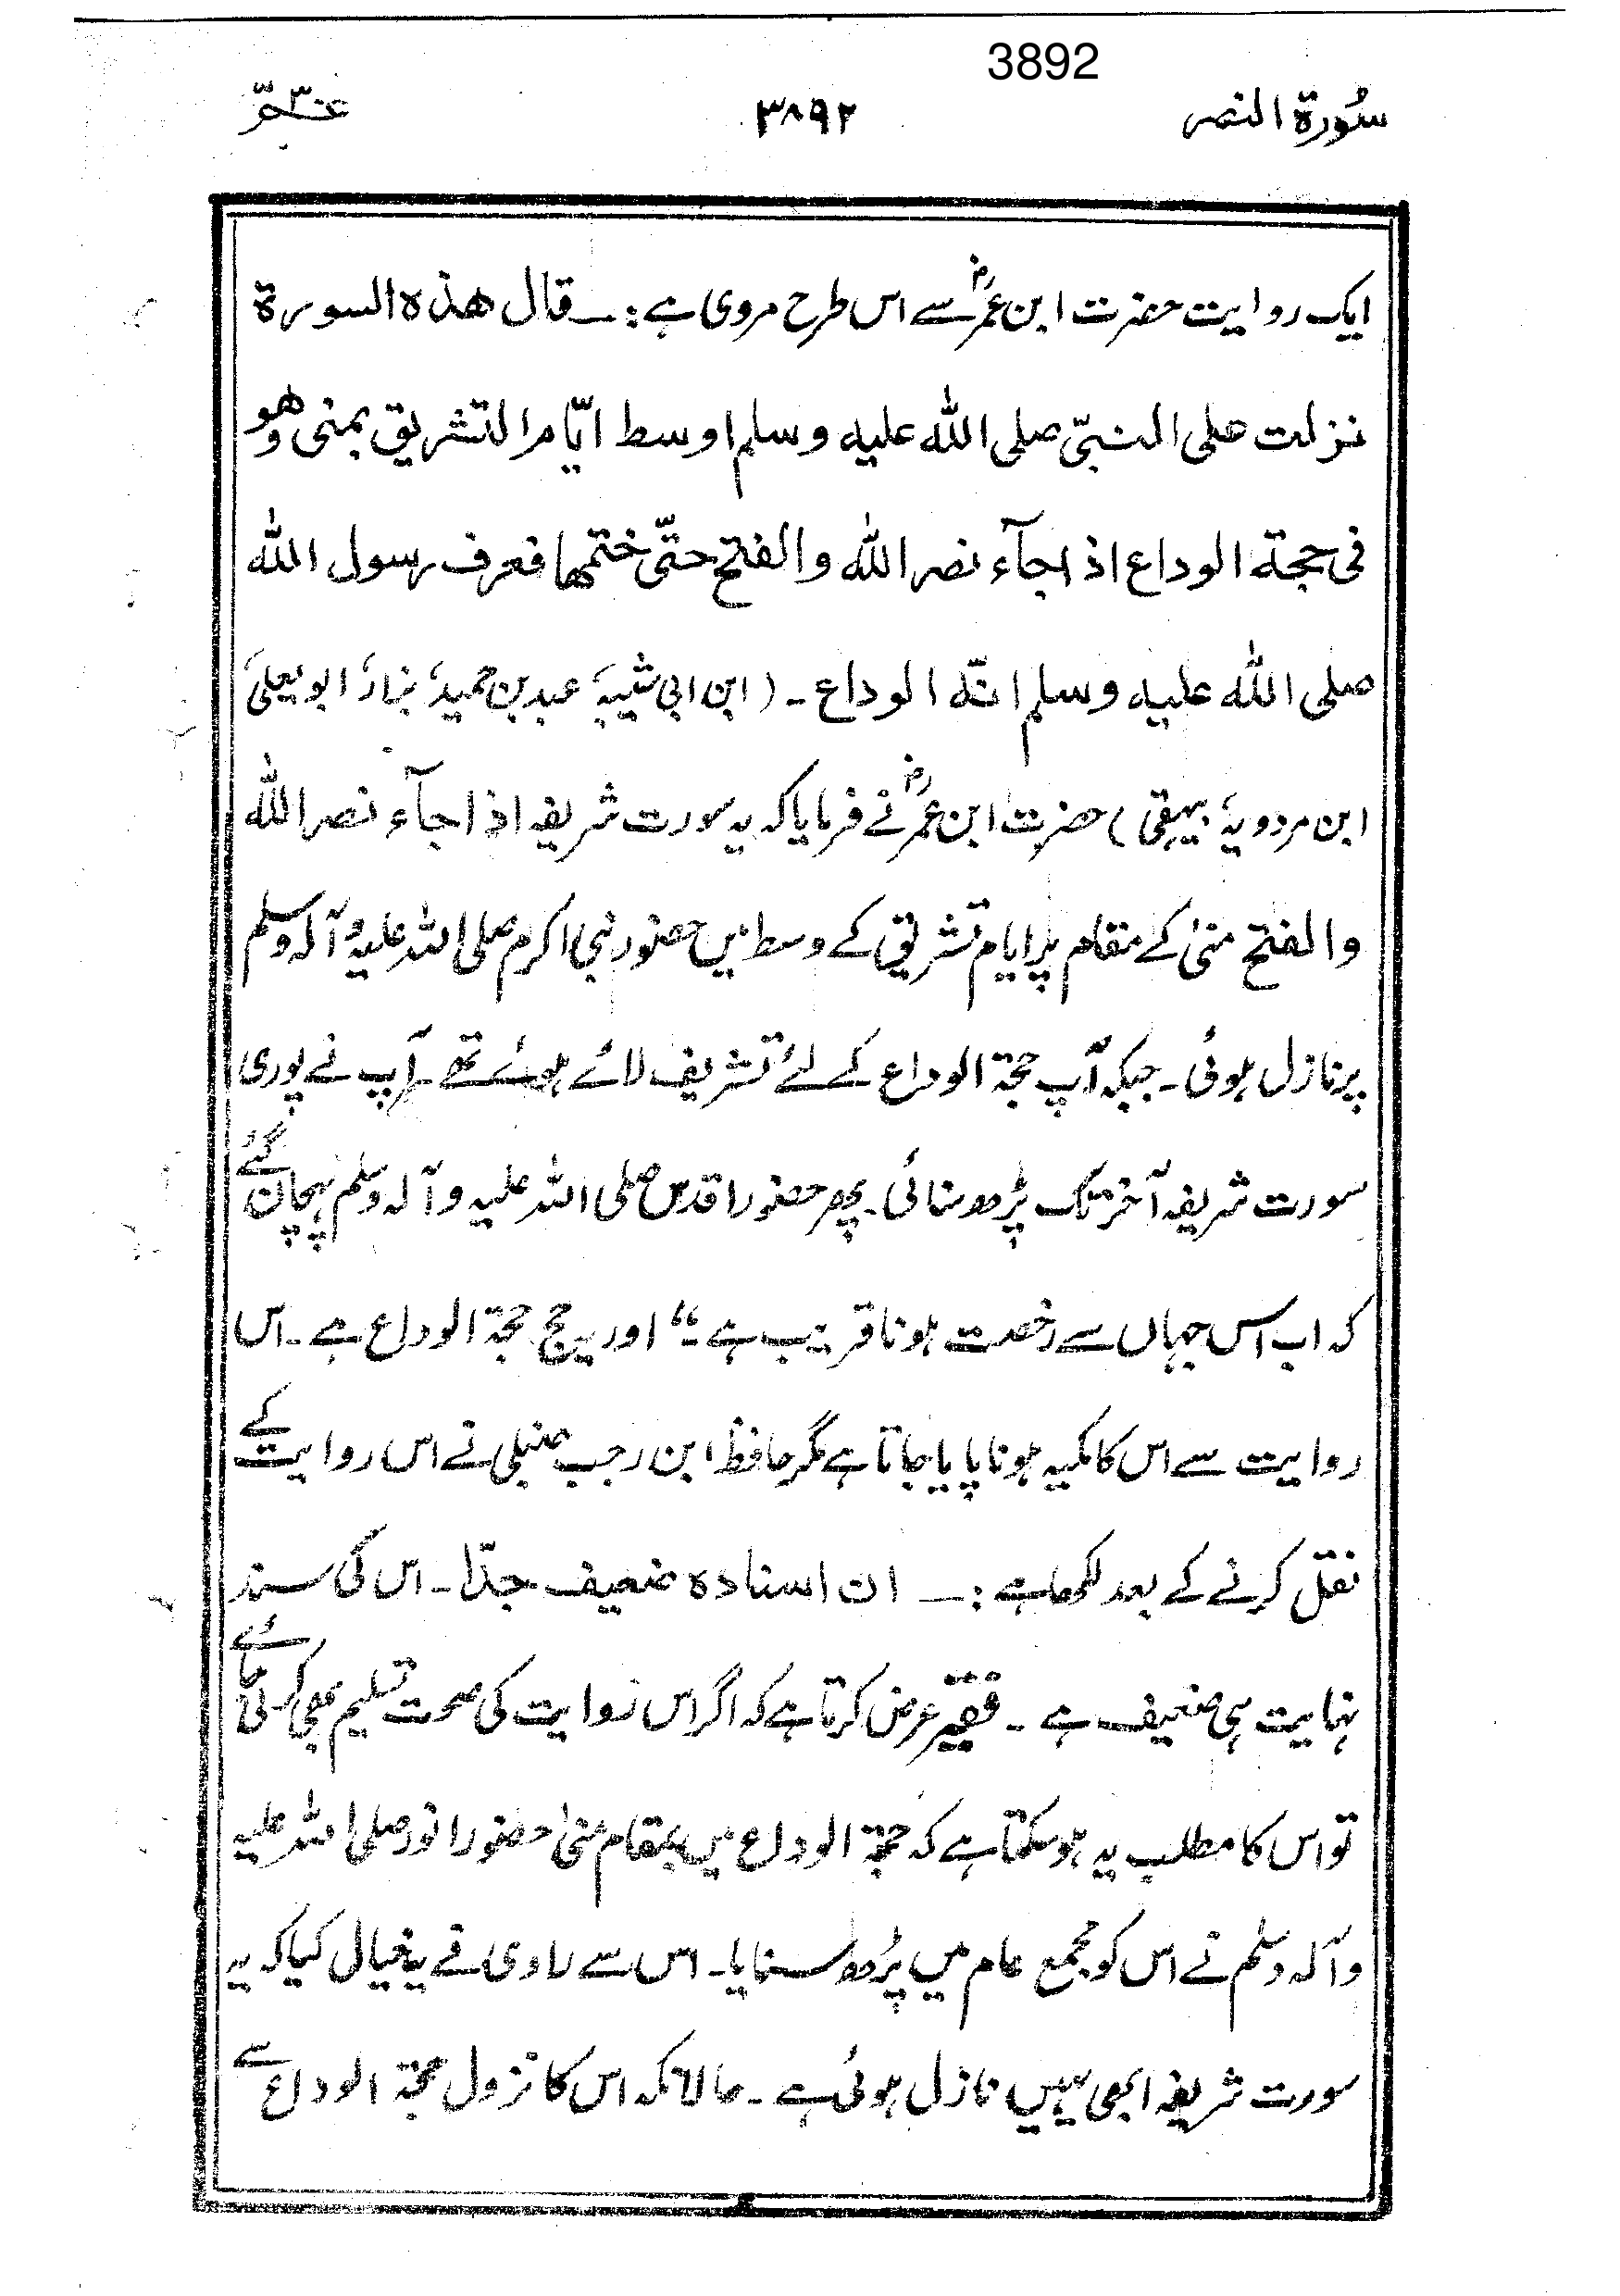 3892
سُورة النصر ٣٨٩٢ عــمّ ٣٠
ایک روایت حضرت ابن عمرؓ سے اس طرح مروی ہے :ــ قال هذه السورة
نزلت علی النبیّ صلی اللّٰه علیه وسلم اوسط ایّام التشریق بمنی وهو
فی حجة الوداع اذا جآء نصر اللّٰه والفتح حتّی ختمها فعرف رسول اللّٰه
صلی اللّٰه علیه وسلم انّه الوداع ۔ (ابن ابی شیبہ، عبد بن حمید، بزار، ابو یعلی،
ابن مردویہ، بیہقی) حضرت ابن عمرؓ نے فرمایا کہ یہ سورت شریفہ اذا جآء نصر اللّٰه
والفتح منیٰ کے مقام پر ایام تشریق کے وسط میں حضور نبی اکرم صلی اللہ علیہ وآلہ وسلم
پر نازل ہوئی ۔ جبکہ آپ حجۃ الوداع کے لئے تشریف لائے ہوئے تھے ۔ آپ نے پوری
سورت شریفہ آخر تک پڑھ سنائی ۔ پھر حضور اقدس صلی اللہ علیہ وآلہ وسلم پہچان گئے
کہ اب اس جہاں سے رخصت ہونا قریب ہے ۔“ اور یہ حج حجۃ الوداع ہے ۔ اس
روایت سے اس کا مکیہ ہونا پایا جاتا ہے مگر حافظ ابن رجب حنبلی نے اس روایت کے
نقل کرنے کے بعد لکھا ہے :ــ ان اسناده ضعیف جدّا ۔ اس کی سند
نہایت ہی ضعیف ہے ۔ فقیر عرض کرتا ہے کہ اگر اس روایت کی صحت تسلیم بھی کر لی جائے
تو اس کا مطلب یہ ہو سکتا ہے کہ حجۃ الوداع میں بمقام منیٰ حضور انور صلی اللہ علیہ
وآلہ وسلم نے اس کو مجمع عام میں پڑھ سنایا ۔ اس سے راوی نے یہ خیال کیا کہ یہ
سورت شریفہ ابھی یہیں نازل ہوئی ہے ۔ حالانکہ اس کا نزول حجۃ الوداع سے